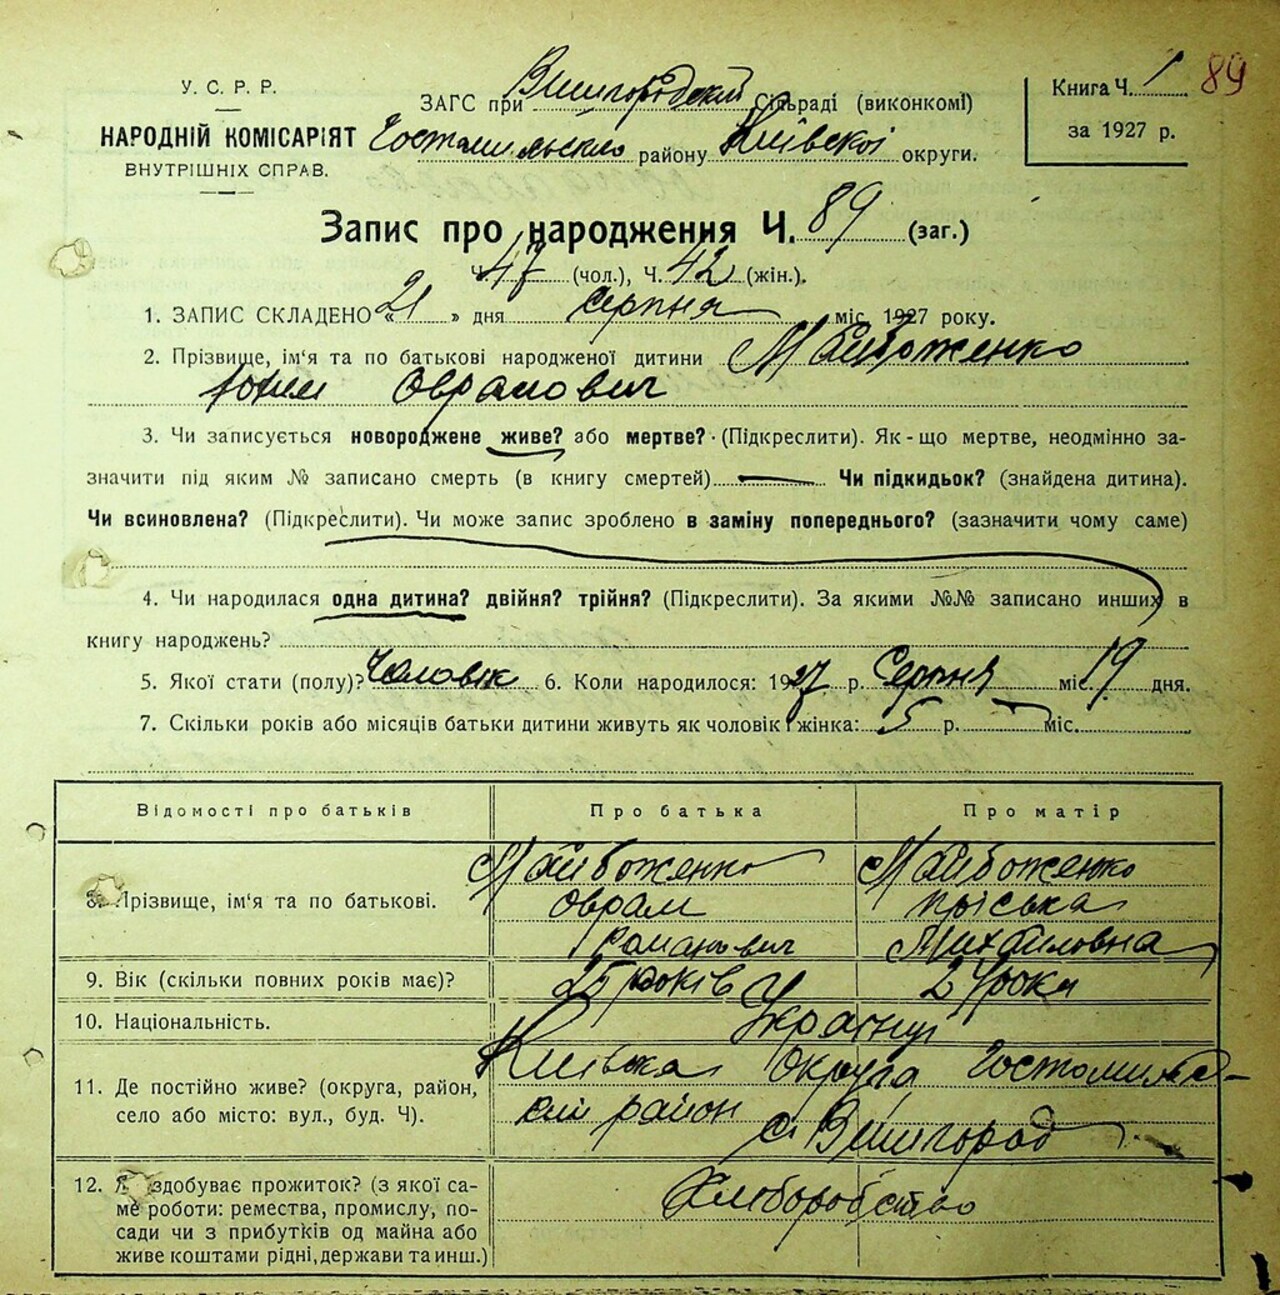 У. С. Р. Р.
НАРОДНІЙ КОМІСАРІЯТ
ВНУТРІШНІХ СПРАВ.
ЗАГС при Вишгородский сільраді (виконкомі)
Гостомильского району Київскої округи.
Книга Ч. 1
за 1927 р.
89
Запис про народження Ч. 89 (заг.)
Ч. 47 (чол.), Ч. 42 (жін.).
1. ЗАПИС СКЛАДЕНО «21» дня серпня міс. 1927 року.
2. Прізвище, ім‘я та по батькові народженої дитини Майбоженко
Юхим Оврамович
3. Чи записується новороджене живе? або мертве? (Підкреслити). Як-що мертве, неодмінно за-
значити під яким № записано смерть (в книгу смертей) — Чи підкидьок? (знайдена дитина).
Чи всиновлена? (Підкреслити). Чи може запис зроблено в заміну попереднього? (зазначити чому саме)
4. Чи народилася одна дитина? двійня? трійня? (Підкреслити). За якими №№ записано инших в
книгу народжень?
5. Якої стати (полу)? Чоловік 6. Коли народилося: 1927 р. Серпня міс. 19 дня.
7. Скільки років або місяців батьки дитини живуть як чоловік і жінка: 5 р. — міс.
Відомості про батьків Про батька Про матір
8. Прізвище, ім‘я та по батькові.
Майбоженко Оврам Романович
Майбоженко Пріська Михайловна
9. Вік (скільки повних років має)? 25 років 24 роки
10. Національність. Українці
11. Де постійно живе? (округа, район,
село або місто: вул., буд. Ч).
Київска округа Гостомильс-
кий район
с. Вишгород
12. Як здобуває прожиток? (з якої са-
ме роботи: ремества, промислу, по-
сади чи з прибутків од майна або
живе коштами рідні, держави та инш.)
Хлиборобство